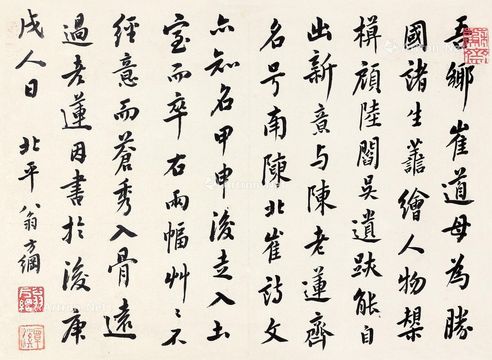 吾鄉崔道母為勝
國諸生譱繪人物槼
橅顧陸閻吳遺跡能自
出新意與陳老蓮齊
名号南陳北崔詩文
亦知名甲申後走入土
室而卒右兩幅艸〻不
經意而蒼秀入骨遠
過老蓮因書於後庚
戌人日 北平翁方綱